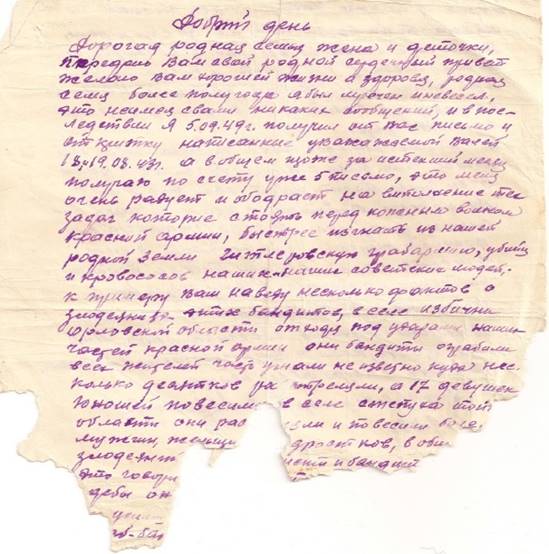 Добрый день
Дорогая родная семья жена и деточки,
передаю Вам свой родной сердечный привет
желаю Вам хорошей жизни и здоровя, родная
семя более полугода я был мрачен и невесел,
это неимея свами никаких сообщений, и в пос-
ледствии я 5.09.43г. получил от Вас письмо и
открытку написанные уважаемой Валей
19.08.43г. а в общем тоже за истекший месяц
получаю по счету уже 5 письмо, это меня
очень радует и ободраст на выполнение тех
задач которые стоять перед каждым воином
красной армии, быстрее изгнать из нашей
родной земли Гитлеровскую грабармию, убийц
и кровососов наших советских людей.
к примеру Вам наведу несколько фактов о
этих бандитов, в селе избични
Орловской области отходя под ударами наших
частей красной армии они бандиты ограбили
всех жителей часть угнали не известно куда нес-
колько десятков расстреляли, а 17 девушек
юношей повесили в селе той
области они рас и повесили более
мужчин, женщин дростков, в общ
злодеян бандит
это говори
дебы он